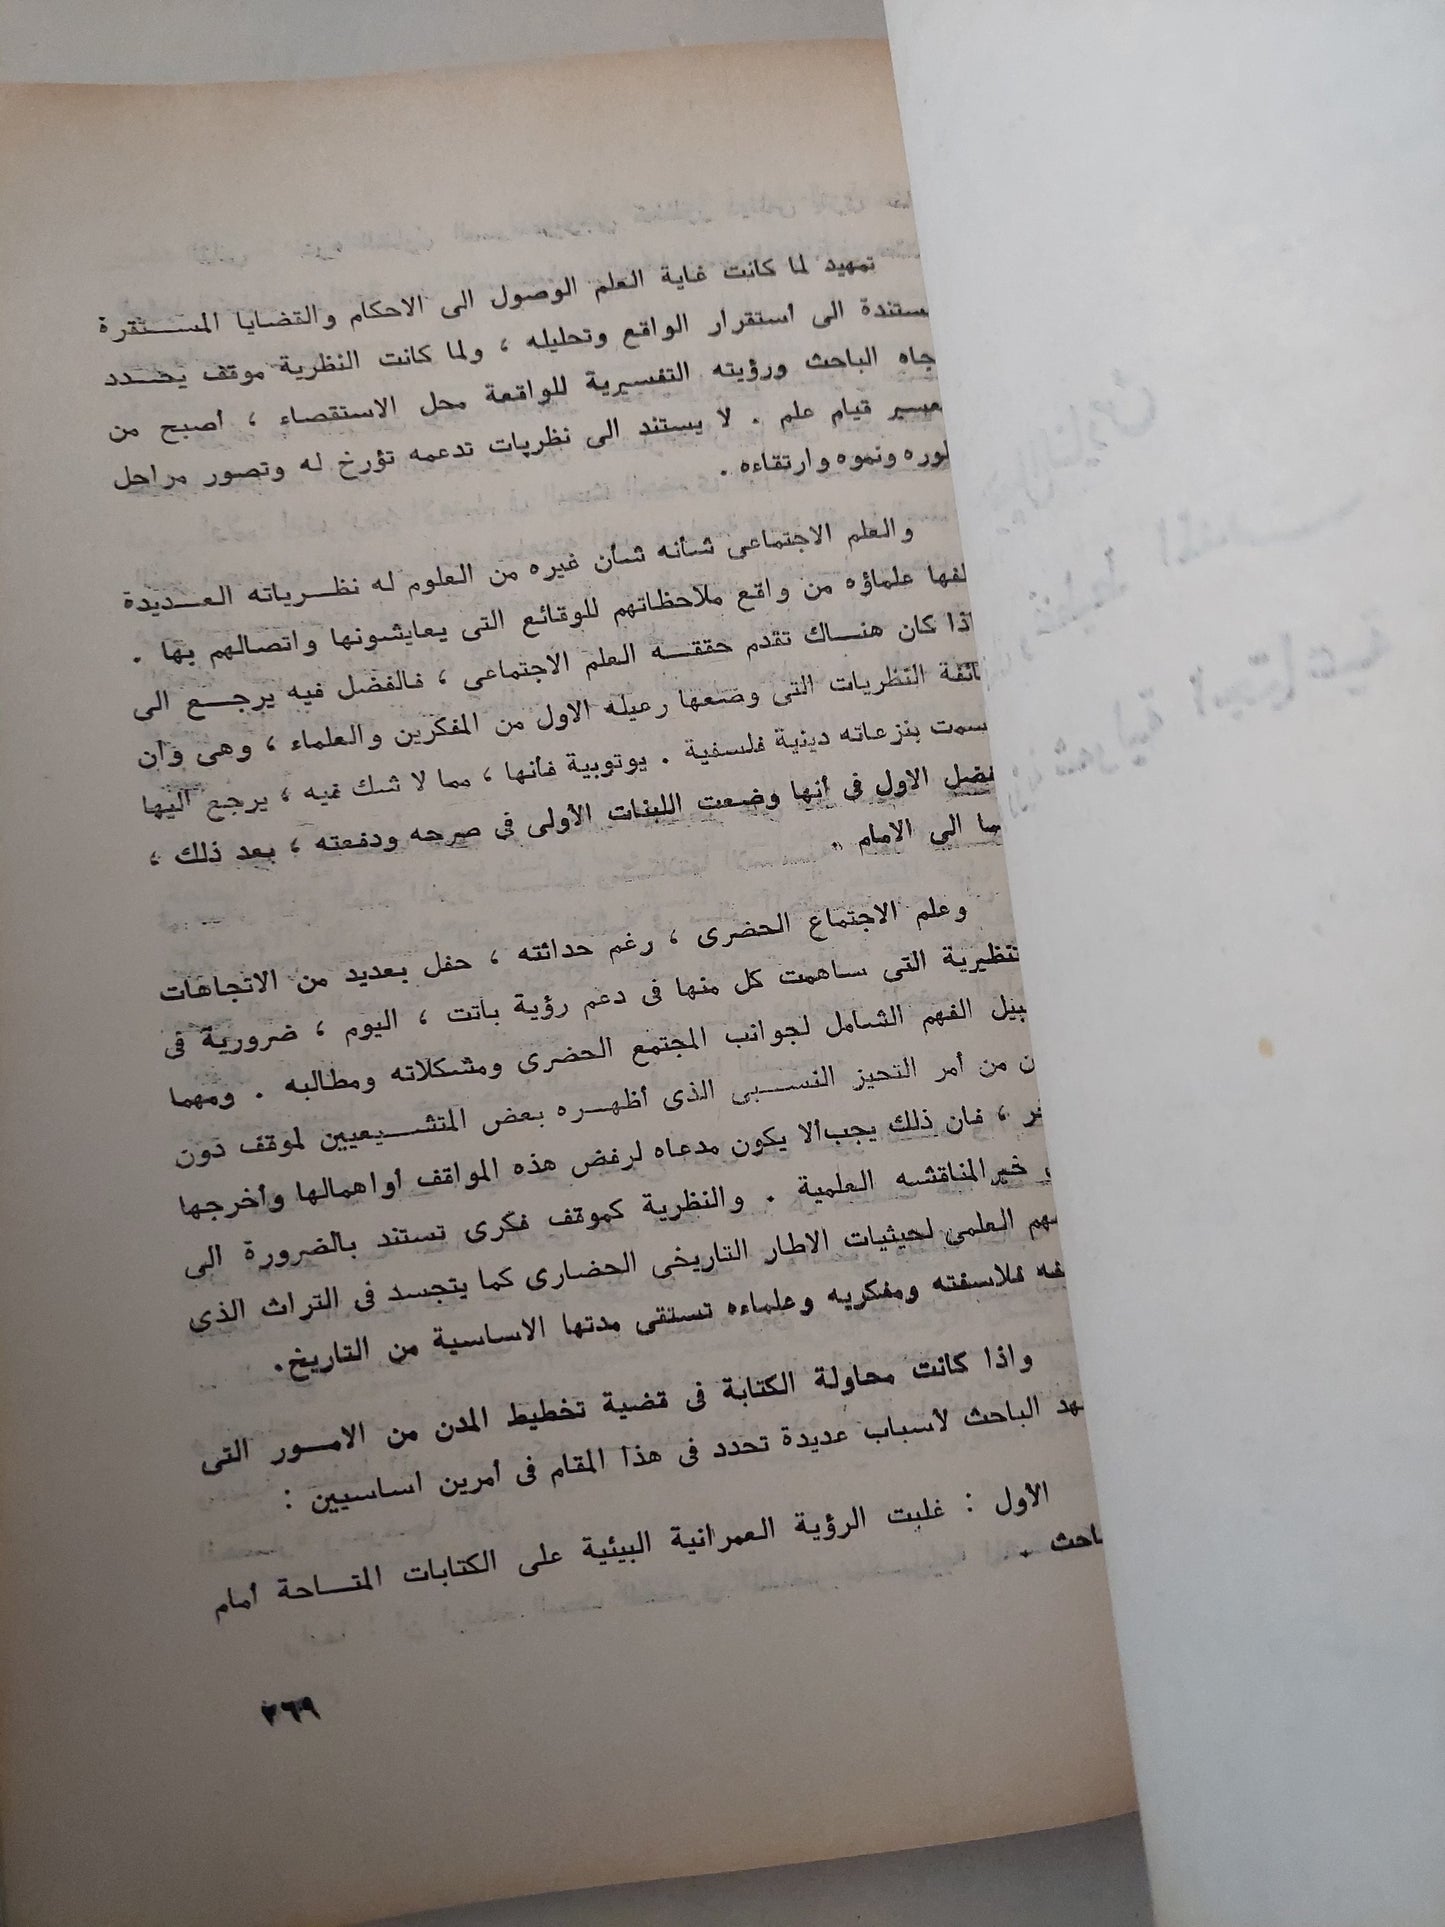 تمهيد لما كانت غاية العلم الوصول الى الاحكام والقضايا المستقرة
ستندة الى أستقرار الواقع وتحليله ، ولما كانت النظرية موقف يحدد
جاه الباحث ورؤيته التفسيرية للواقعة محل الاستقصاء ، أصبح من
عسير قيام علم . لا يستند الى نظريات تدعمه تؤرخ له وتصور مراحل
وره ونموه وارتقاءه .
والعلم الاجتماعى شأنه شأن غيره من العلوم له نظرياته العديدة
لفها علماؤه من واقع ملاحظاتهم للوقائع التى يعايشونها واتصالهم بها .
اذا كان هناك تقدم حققه العلم الاجتماعى ، فالفضل فيه يرجع الى
ائفة النظريات التى وضعها رعيله الاول من المفكرين والعلماء ، وهى وان
سمت بنزعاته دينية فلسفية . يوتوبية فأنها ، مما لا شك فيه ، يرجع اليها
فضل الاول فى أنها وضعت اللبنات الأولى فى صرحه ودفعته ، بعد ذلك ،
ما الى الامام .
وعلم الاجتماع الحضرى ، رغم حداثته ، حفل بعديد من الاتجاهات
تنظيرية التى ساهمت كل منها فى دعم رؤية باتت ، اليوم ، ضرورية فى
بيل الفهم الشامل لجوانب المجتمع الحضرى ومشكلاته ومطالبه . ومهما
ن من أمر التحيز النسبى الذى أظهره بعض المتشيعيين لموقف دون
خر ، فان ذلك يجب ألا يكون مدعاه لرفض هذه المواقف أو اهمالها وأخرجها
خير المناقشه العلمية . والنظرية كموقف فكرى تستند بالضرورة الى
هم العلمى لحيثيات الاطار التاريخى الحضارى كما يتجسد فى التراث الذى
فه فلاسفته ومفكريه وعلماءه تستقى مدتها الاساسية من التاريخ.
واذا كانت محاولة الكتابة فى قضية تخطيط المدن من الامور التى
هد الباحث لأسباب عديدة تحدد فى هذا المقام فى أمرين اساسيين :
الأول : غلبت الرؤية العمرانية البيئية على الكتابات المتاحة أمام
احث .
٢٦٩